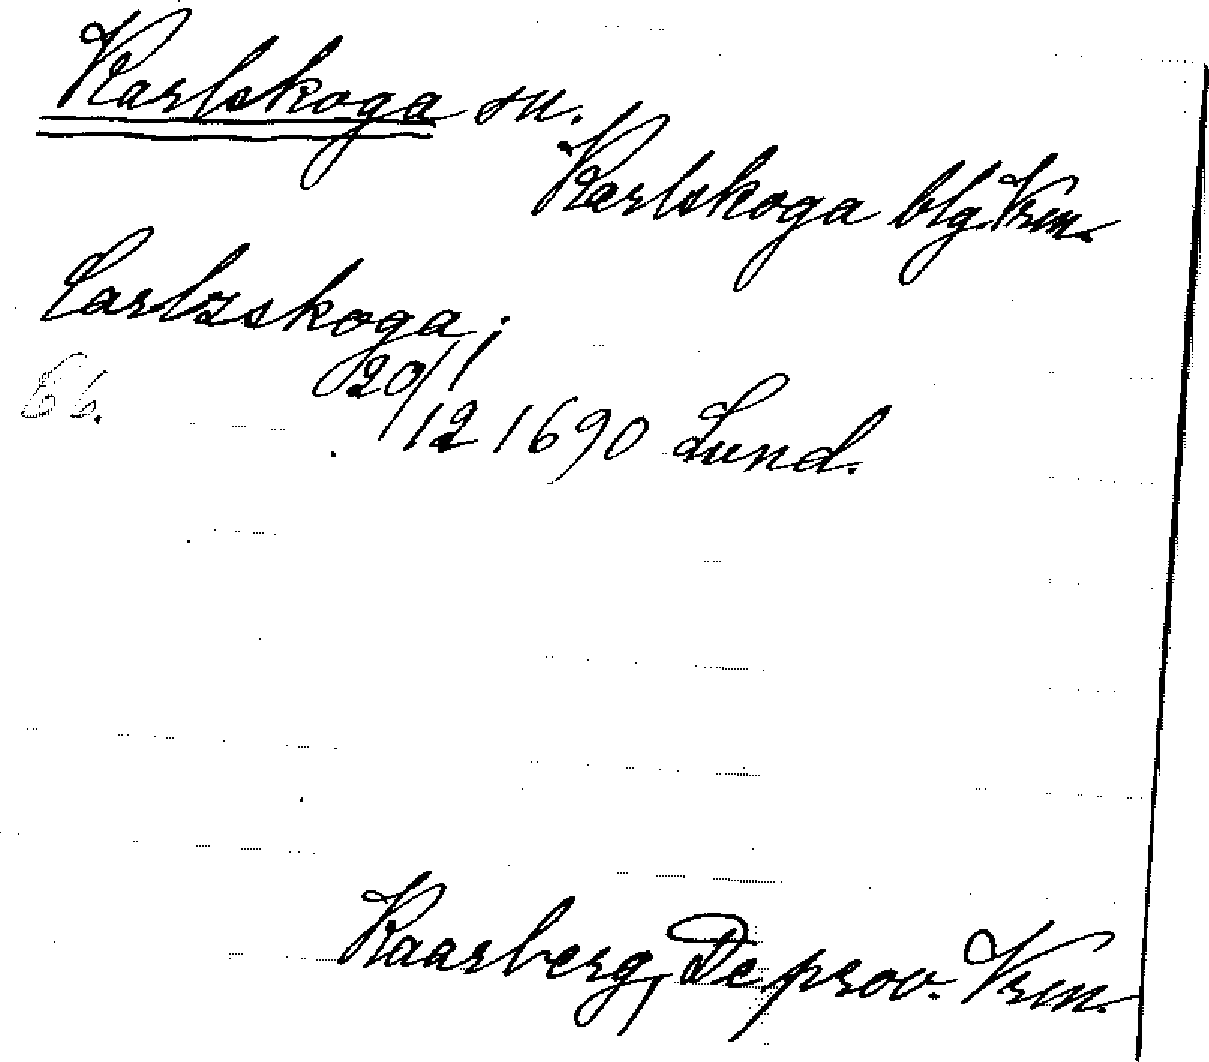 Karlskoga sn.
Karlskoga blg. Vrm.
Carlzskoga;
20/1
/12 1690 Lund.
Kaarberg, De prov. Vrm.